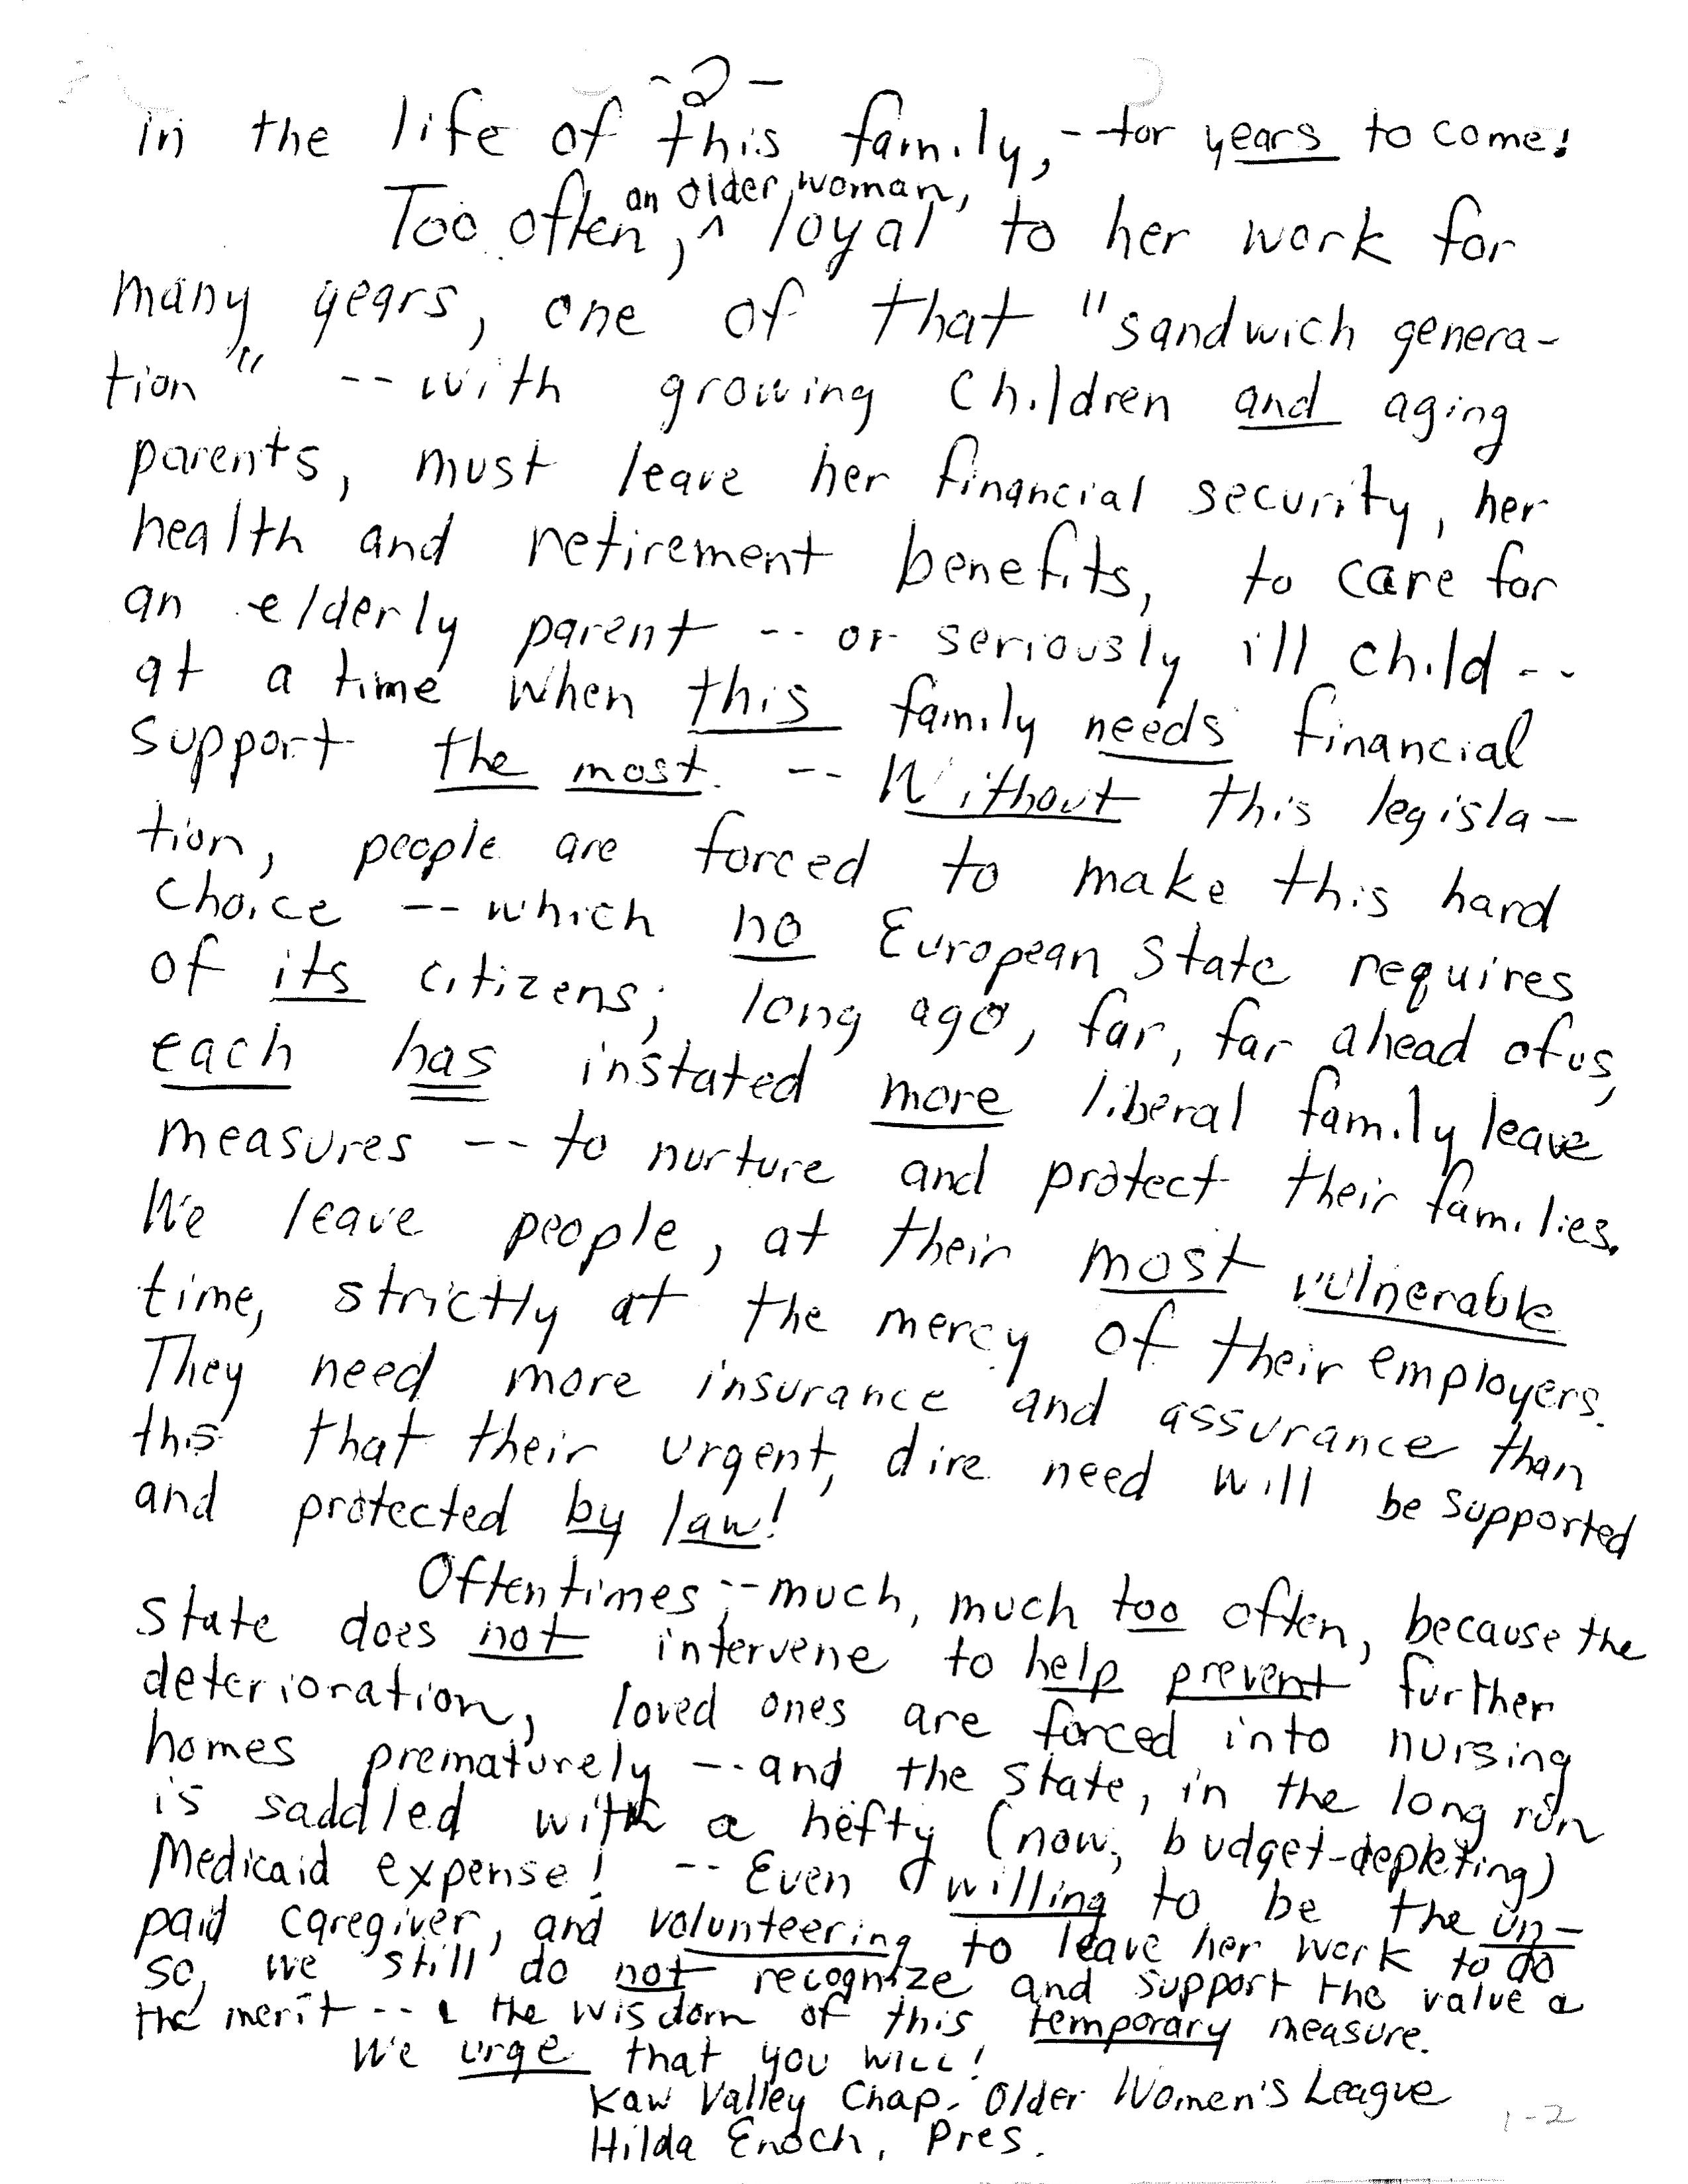 -2-
in the life of this family, - for years to come!
an older woman,
Too often, ^ loyal to her work for
many years, one of that "sandwich genera-
tion" -- with growing children and aging
parents, must leave her financial security, her
health and retirement benefits, to care for
an elderly parent -- or seriously ill child --
at a time when this family needs financial
support the most. -- Without this legisla-
tion, people are forced to make this hard
choice -- which no European State requires
of its citizens; long ago, far, far ahead of us,
each has instated more liberal family leave
measures -- to nurture and protect their families.
We leave people, at their most vulnerable
time, strictly at the mercy of their employers.
They need more insurance and assurance than
this that their urgent, dire need will be supported
and protected by law!
Oftentimes -- much, much too often, because the
State does not intervene to help prevent further
deterioration, loved ones are forced into nursing
homes prematurely -- and the state, in the long run
is saddled with a hefty (now, budget-depleting)
Medicaid expense! -- Even willing to be the un-
paid caregiver, and volunteering to leave her work to do
so, we still do not recognize and support the value &
the merit -- & the wisdom of this temporary measure.
We urge that you WILL!
Kaw Valley Chap. Older Women's League
Hilda Enoch, Pres.
1-2